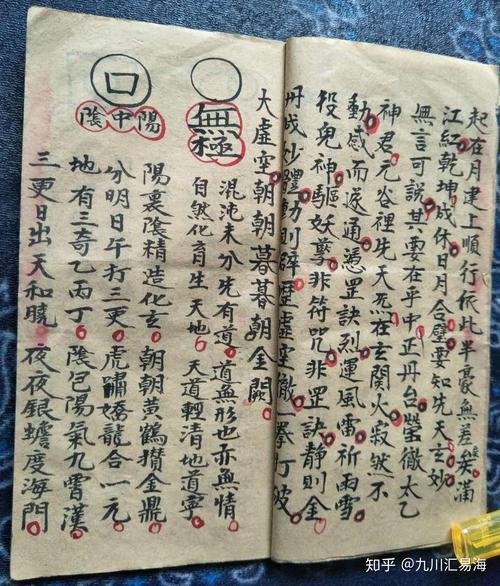 起在月建上順行依此半豪無差矣滿
江紅乾坤成休日月合璧要知先天玄妙
無言可說其要在乎中正丹台瑩徹太乙
神君元谷裡先天炁在玄関火寂然不
動感而遂通憑罡訣烈運風雷祈雨雪
役鬼神驅妖孽非符咒非罡訣静則金
丹成妙體動則霹靂虛空徹一拳打破
大虛空朝朝暮暮朝金闕
無極
混沌未分先有道 道無形也亦無情
自然化育生天地 天道輕清地道寧
口
陽中陰
陽裏陰精造化玄 朝朝黃鶴攢金鼎
分明日午打三更 虎嘯嬌龍合一元
地有三奇乙丙丁 陰包陽氣九霄漢
三更日出天和曉 夜夜銀蟾度海門
知乎 @九川汇易海